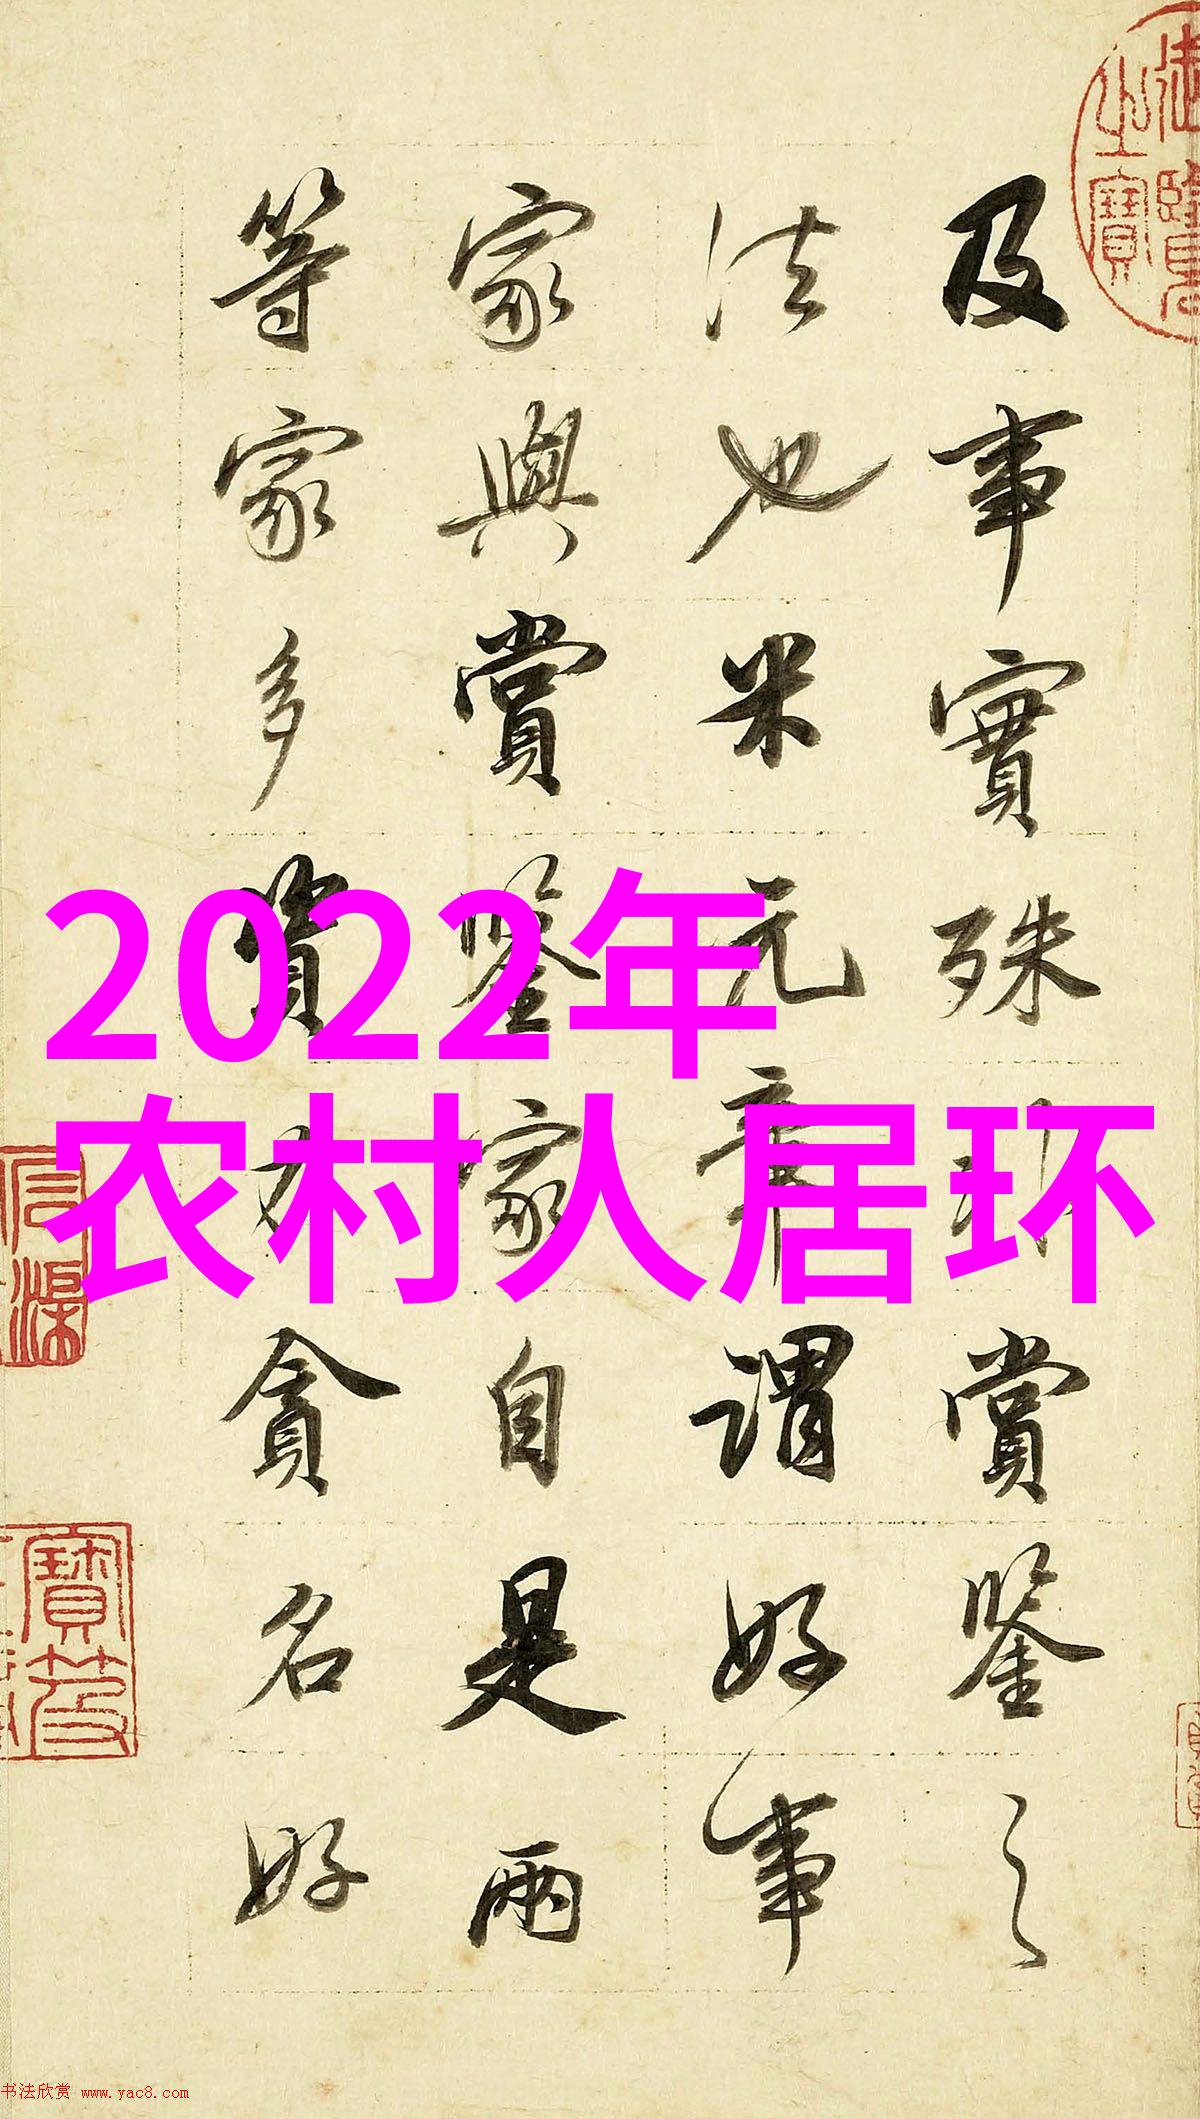 及事實殊
賞鑒之
法也米元章謂好事
家與賞鑒家自是兩
等家多資力貪名好
2022年
农村人居环
御臨
之寶
书法欣赏 www.yac8.com